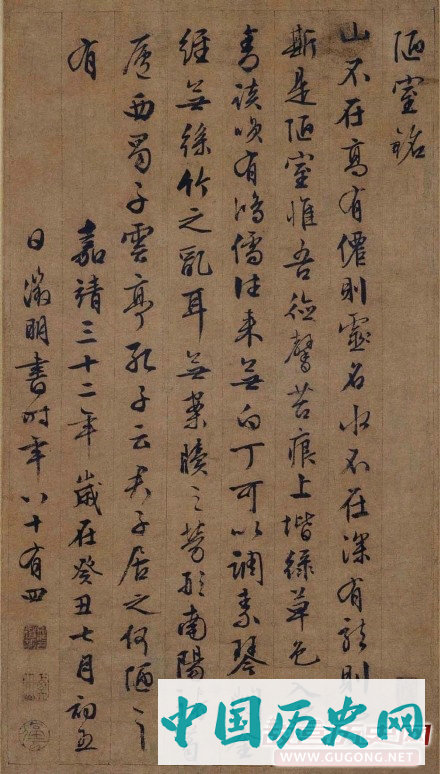 陋室銘
山不在高有僊則靈名水不在深有龍則
斯是陋室惟吾德馨苔痕上堦綠草色入
青談咲有鴻儒往来無白丁可以調素琴
經無絲竹之亂耳無案牘之勞形南陽
廬西蜀子雲亭孔子云君子居之何陋之
有
嘉靖三十二年歲在癸丑七月初五
日徵明書時年八十有四
中国历史网
WWW.GUGONG.NET